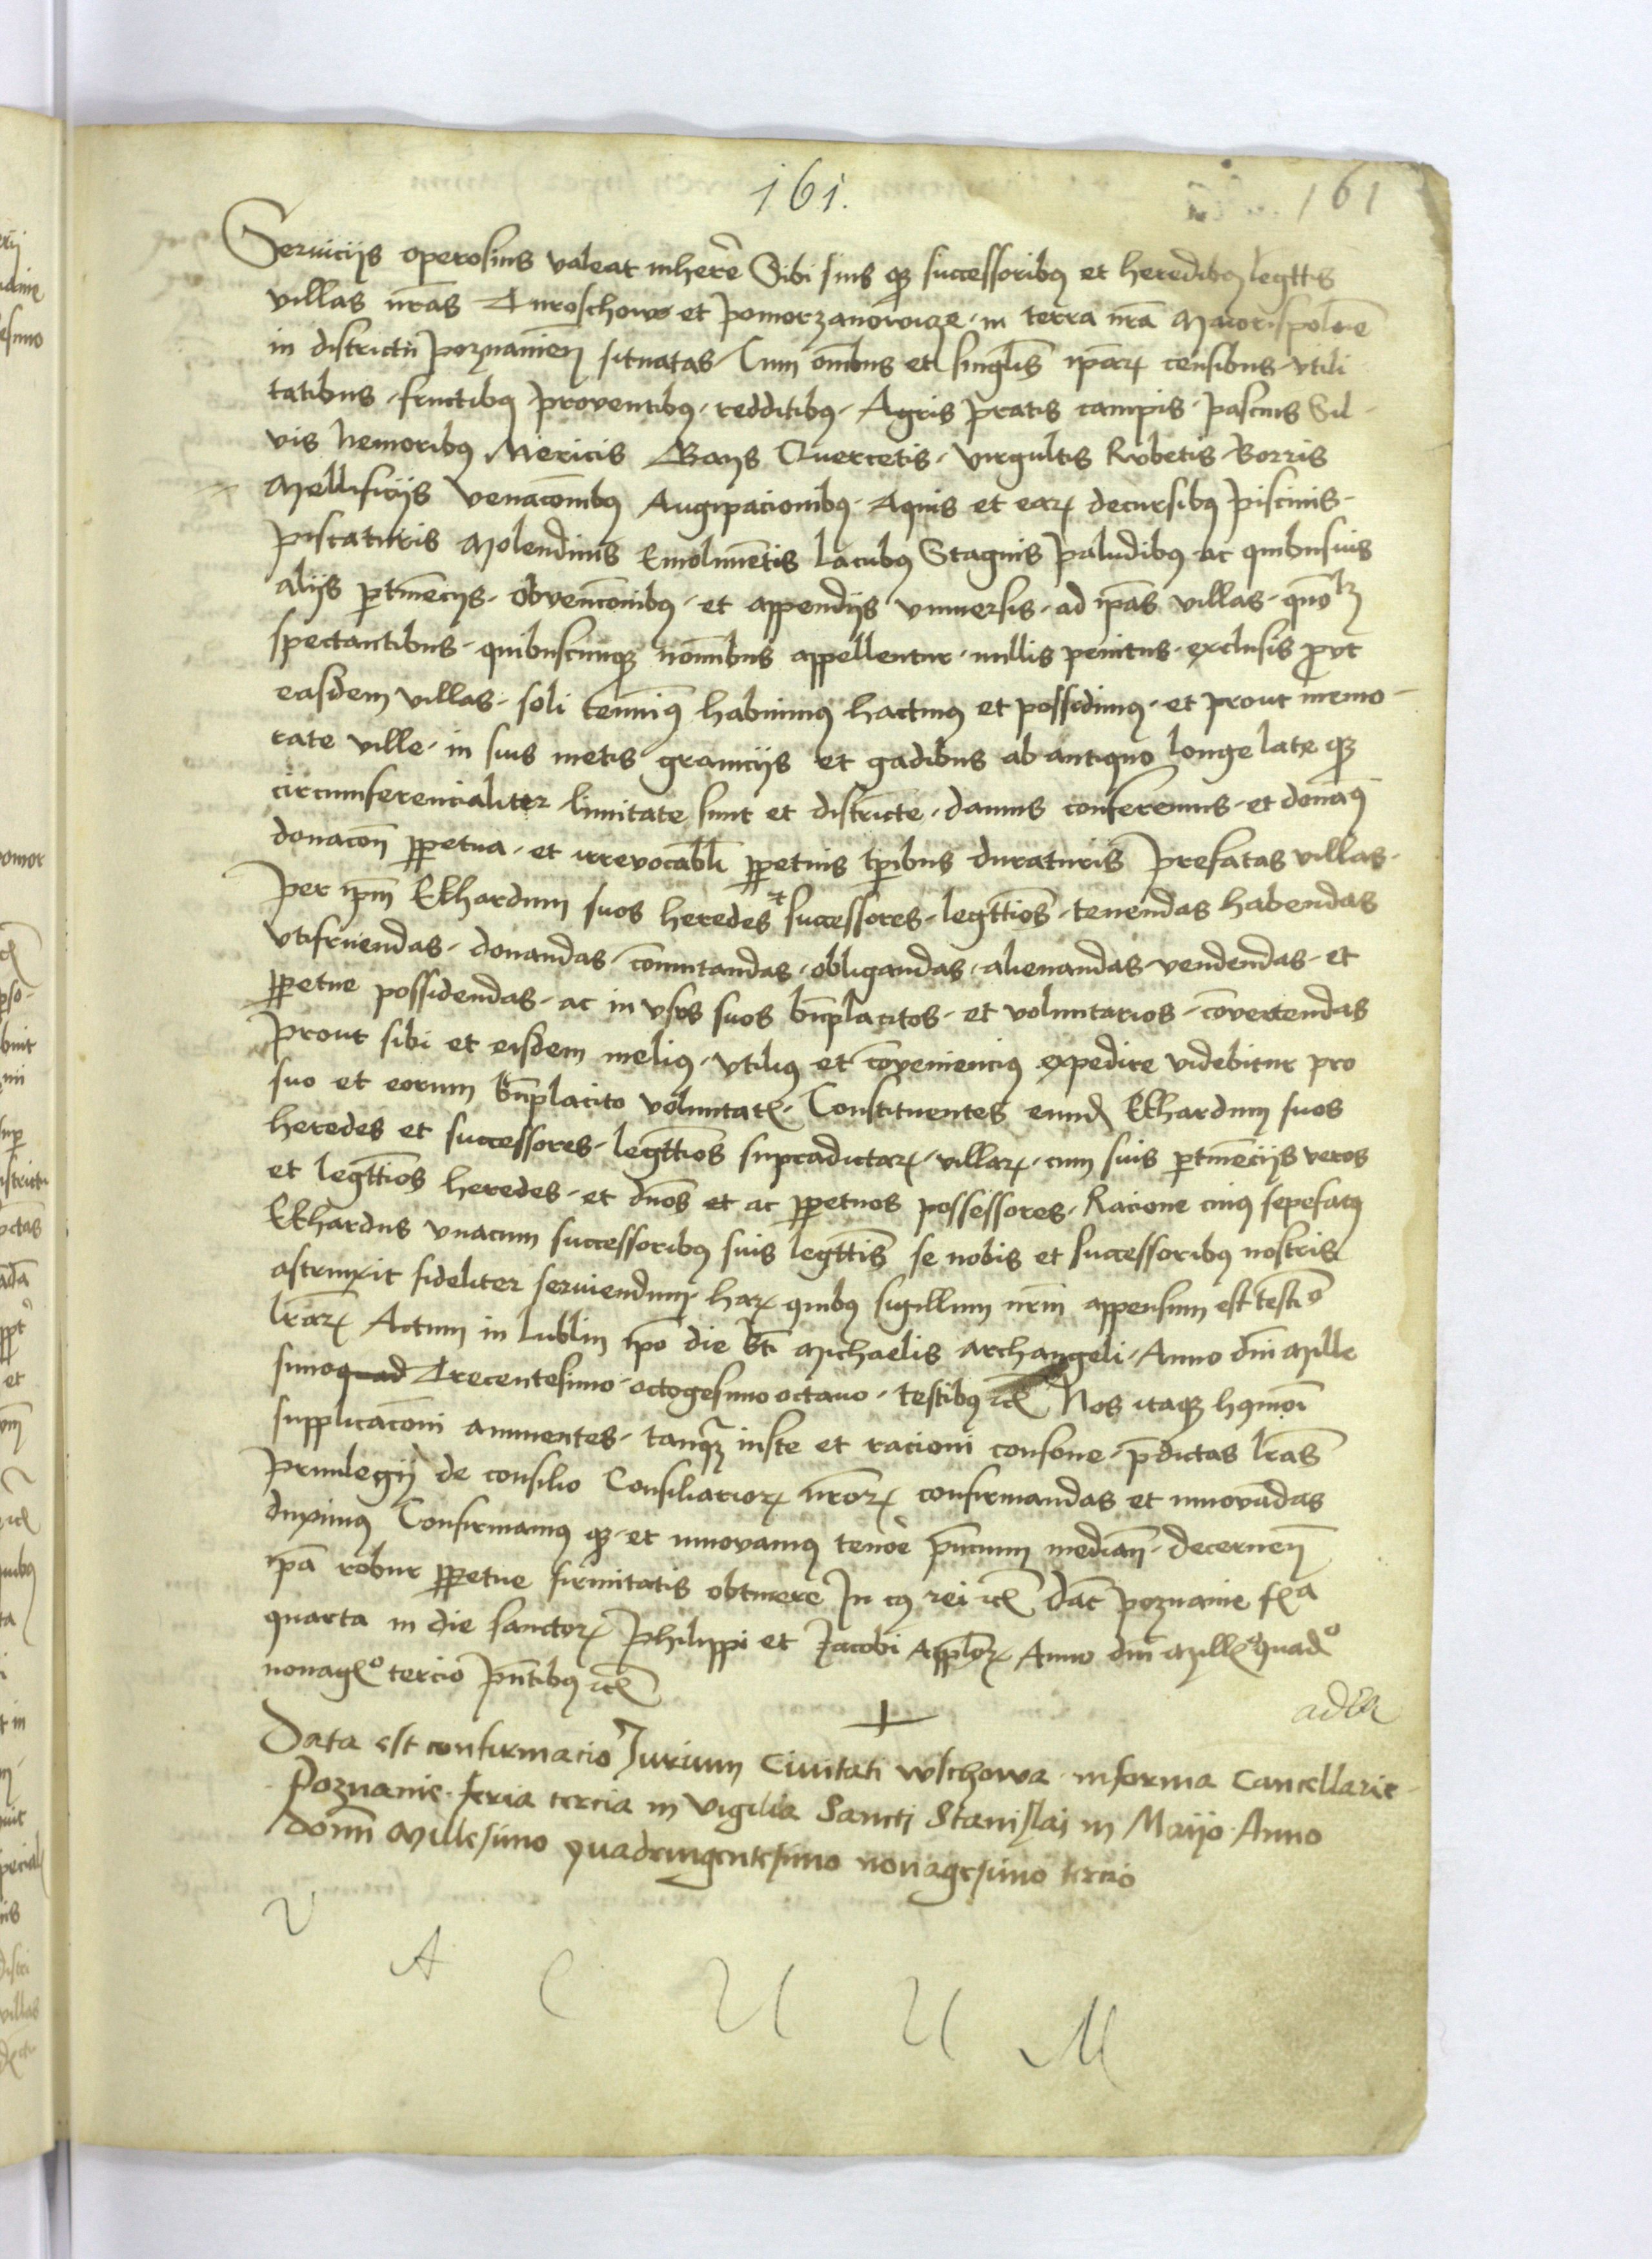 161.
161
Serviciis operosius valeat inherē Sibi suis qȝ successoribꝰ et heredibꝰ legttis
villas nr̄as Turoschowo et pomorzanowicze in terra nr̄a Maioris polonīe
in districtu poznanien̄ situatas Cum om̄ibus et singul̄is ip̄arꝝ censibus vtili
tatibus fructibꝰ proventibꝰ redditibꝰ Agris pratis campis pascuis Sil-
vis Nemoribꝰ Mericis Gays Quercetis virgultis Rubetis Borris
Mellificijs venacōnibꝰ Aucupacionibꝰ Aquis et earꝝ decursibꝰ piscinis
piscaturis Molendinis Emolumētis lacubꝰ Stagnis paludibꝰ ac quibusuis
alijs p̱tinēcijs obvencōnibꝰ et appendijs vniuersis ad ip̄as villas quōlꝫ
spectantibus quibuscunqꝫ nōīnibus appellentur nullis penitus exclusis pro̱ut
easdem villas soli tenuimꝰ habuimꝰ hactinꝰ et possedimꝰ et prout memo-
rate ville in suis metis granicijs et gadibus ab antiquo longe late qꝫ
circumferencialiter limitate sunt et districte damus conferemus et donamꝰ
donacōn̄ ꝑpetua et irrevocabl̄i ꝑpetuis tp̄ribus duraturis prefatas villas
per ip̄m Ekhardum suos heredes et successores legtt̄ios tenendas habendas
vtifruendas donandas cōmutandas obligandas alienandas vendendas et
ꝑpetue possidendas ac in vsus suos bn̄placitos et voluntarios cōvertendas
prout sibi et eisdem meliꝰ vtiliꝰ et cōvenienciꝰ expedire videbitur pro
suo et eorum bn̄placito voluntatꝭ Constituentes eundꝭ Ekhardum suos
heredes et successores legtt̄ios supradictarꝝ villarꝝ cum suis ptinēcijs veros
et legtt̄ios heredes et dn̄os et ac ꝑpetuos possessores Racione cuiꝰ sepefatꝰ
Ekhardus vnacum successoribꝰ suis legtt̄is se nobis et successoribꝰ nostris
astrinxit fideliter serviendum harꝝ quibꝰ sigillum nr̄m appensum est testiō
lr̄arꝝ Actum in Lublin ip̄o die bt̄i Michaelis archangeli Anno dn̄i Mille
simo quad Trecentesimo octogesimo octauo testibꝰ etcꝭ Nos itaqꝫ hꝰmōi
supplicacōni annuentes tanqꝫ iuste et racioni consone p̄dictas lr̄as
privilegij de consilio Consiliariorꝝ nr̄orꝝ confirmandas et innovādas
duximꝰ Confirmamꝰ qꝫ et innovamꝰ tenōe p̄ncium median̄ decernen̄
ip̄a robur ꝑpetue firmitatis obtinere In cꝰ rei etcꝭ Dat̄ poznanie fꝭa
quarta in die sanctorꝝ philippi et Jacobi Applorꝝ Anno dn̄i Millꝭo quadᵒ
nonagꝭᵒ tercio p̄ntibꝰ etcꝭ
Data est confirmacio Jurium Ciuitati wschowa in forma Cancellarie
Poznanie feria tercia in Vigilia Sancti Stanislai in Maijo Anno
domī Millesimo quadringentesimo nonagesimo tercio
V A C U U M